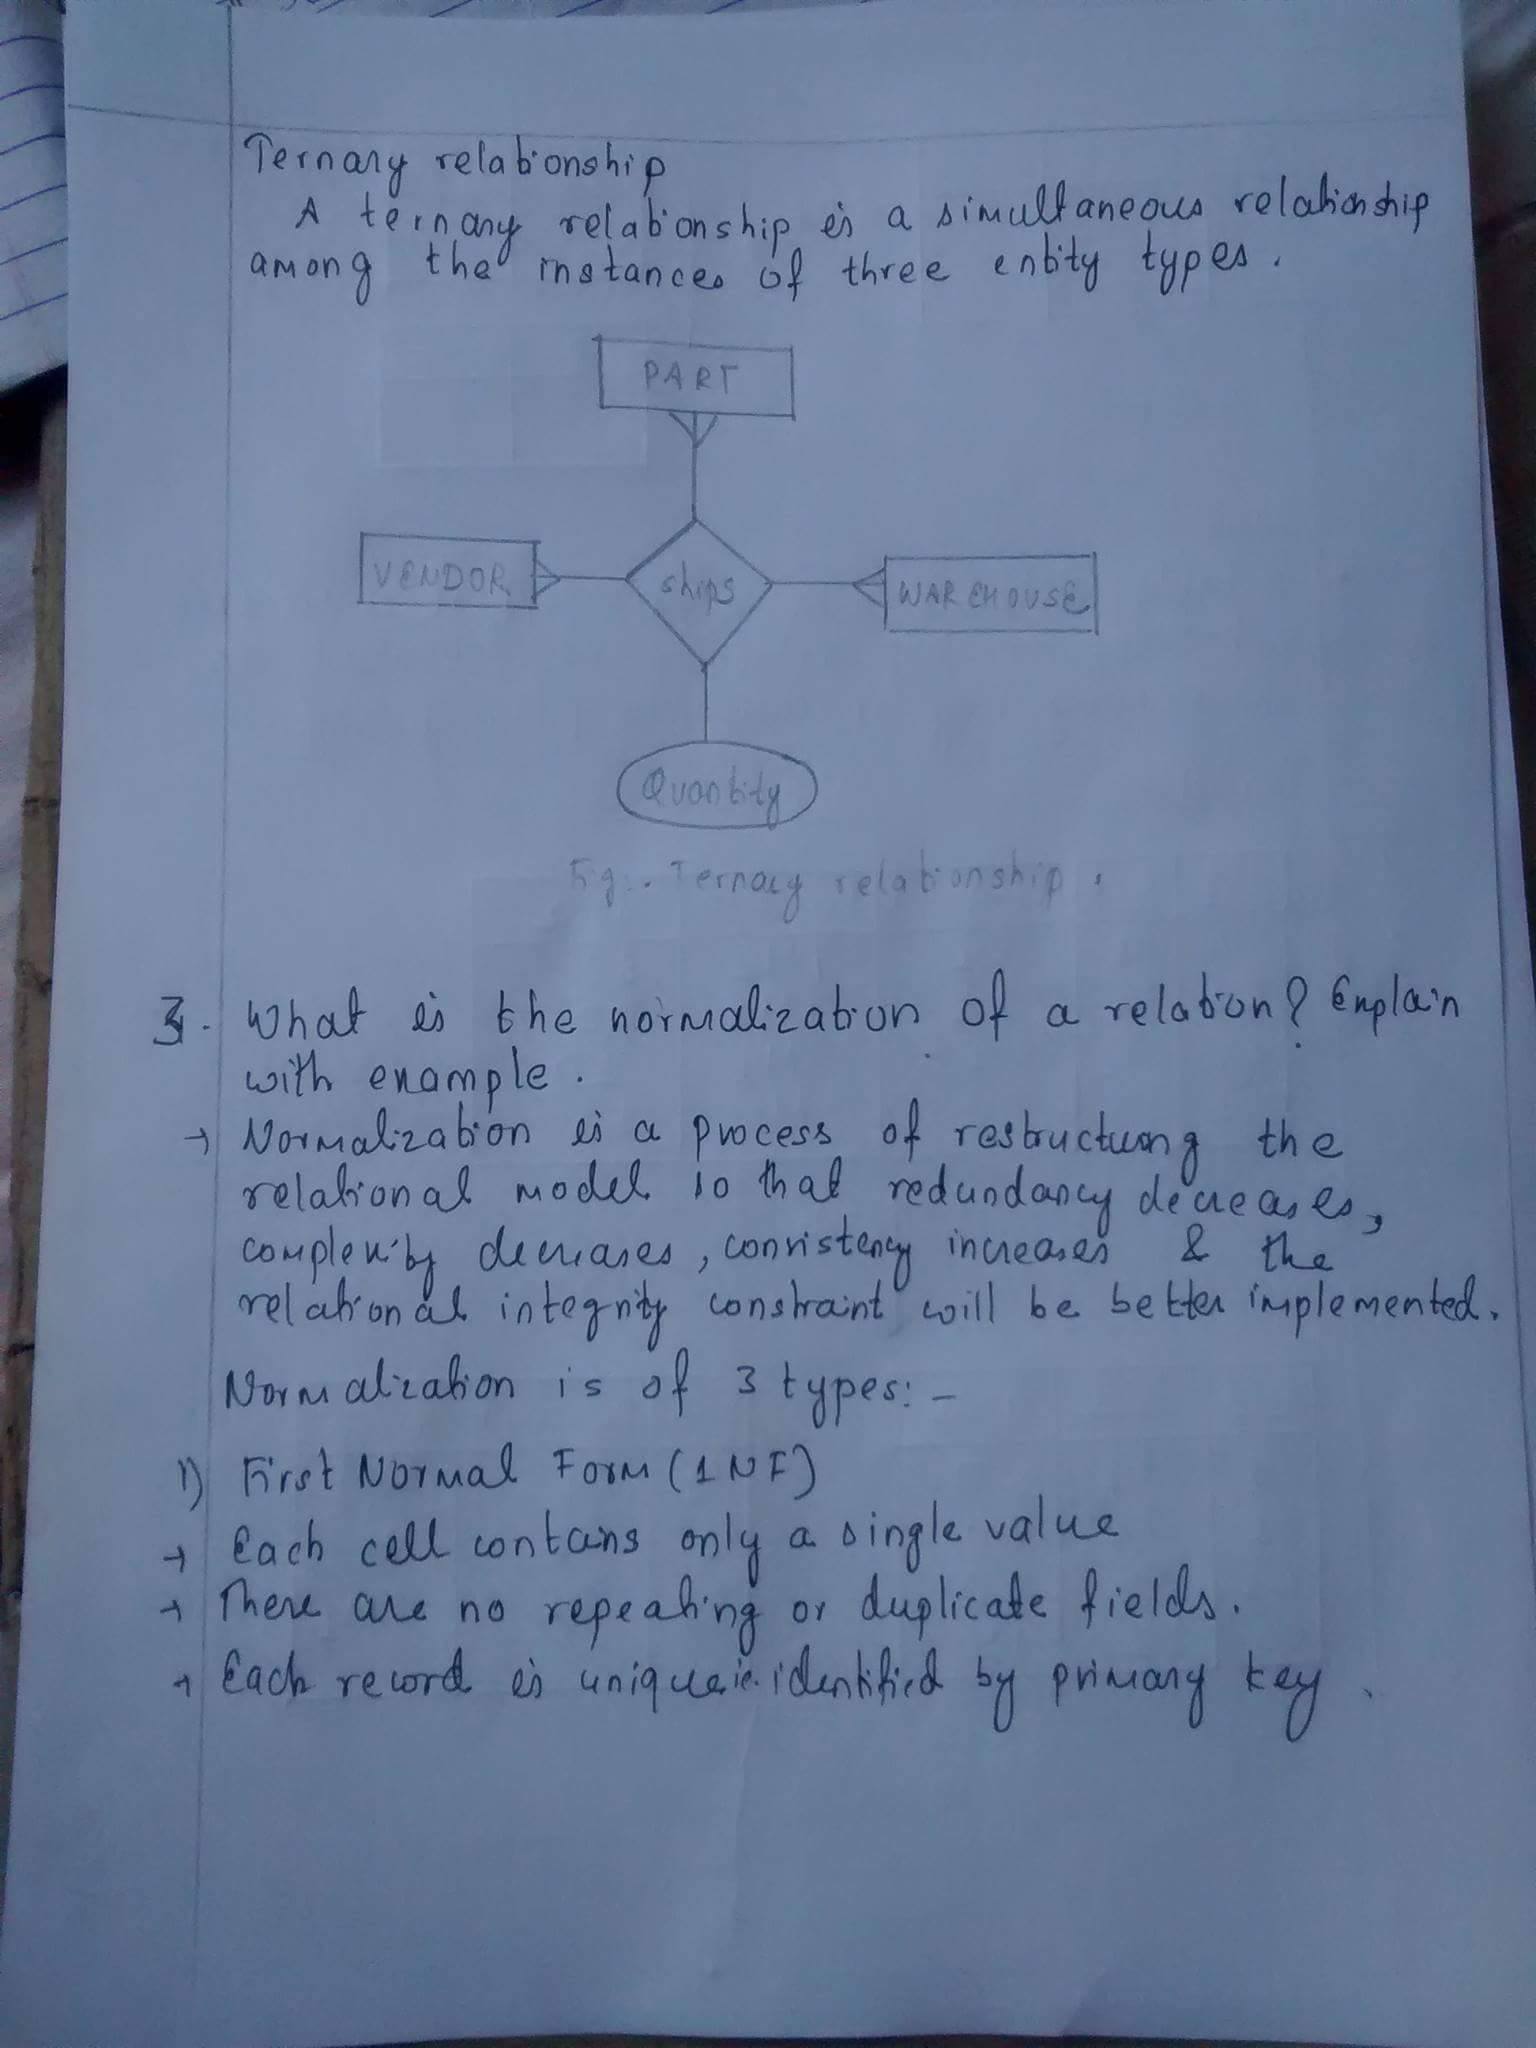 Ternary relationship
A ternary relationship is a simultaneous relationship
among the instances of three entity types.
PART
VENDOR
ships
WAREHOUSE
Quantity
Fig:. Ternary relationship.
3. What is the normalization of a relation? Explain
with example.
→ Normalization is a process of restructuring the
relational model so that redundancy decreases,
complexity decreases, consistency increases & the
relational integrity constraint will be better implemented.
Normalization is of 3 types:-
1) First Normal Form (1NF)
→ Each cell contains only a single value
→ There are no repeating or duplicate fields.
→ Each record is unique i.e. identified by primary key.